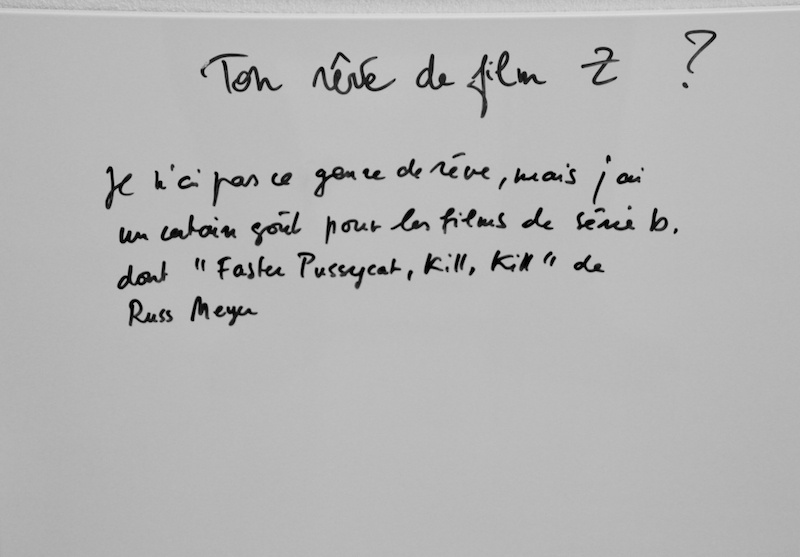 Ton rêve de film Z ?
Je n'ai pas ce genre de rêve, mais j'ai
un certain goût pour les films de série b.
dont "Faster Pussycat, Kill, Kill" de
Russ Meyer